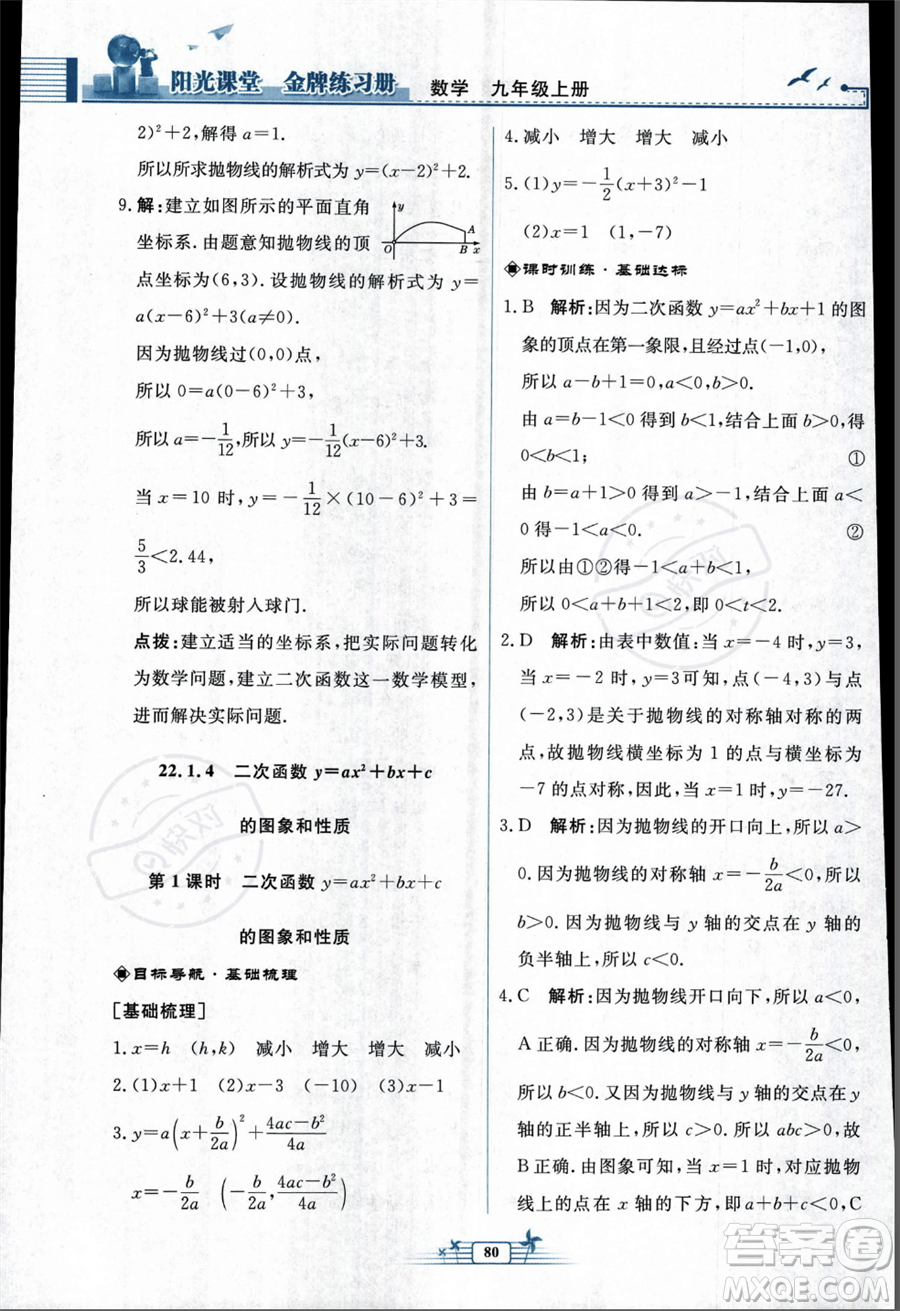 阳光课堂 金牌练习册 数学 九年级上册
2)²+2,解得 a=1.
所以所求抛物线的解析式为 y=(x-2)²+2.
9.解:建立如图所示的平面直角
坐标系.由题意知抛物线的顶
点坐标为(6,3).设抛物线的解析式为 y=
y
A
O
B
x
a(x-6)²+3(a≠0).
因为抛物线过(0,0)点,
所以 0=a(0-6)²+3,
所以 a=-1/12,所以 y=-1/12(x-6)²+3.
当 x=10 时,y=-1/12×(10-6)²+3=
5/3<2.44,
所以球能被射入球门.
点拨:建立适当的坐标系,把实际问题转化
为数学问题,建立二次函数这一数学模型,
进而解决实际问题.
22.1.4 二次函数 y=ax²+bx+c
的图象和性质
第 1 课时 二次函数 y=ax²+bx+c
的图象和性质
目标导航·基础梳理
[基础梳理]
1.x=h (h,k) 减小 增大 增大 减小
2.(1)x+1 (2)x-3 (-10) (3)x-1
3.y=a(x+b/2a)²+(4ac-b²)/4a
x=-b/2a (-b/2a,(4ac-b²)/4a)
4.减小 增大 增大 减小
5.(1)y=-1/2(x+3)²-1
(2)x=1 (1,-7)
课时训练·基础达标
1.B 解析:因为二次函数 y=ax²+bx+1 的图
象的顶点在第一象限,且经过点(-1,0),
所以 a-b+1=0,a<0,b>0.
由 a=b-1<0 得到 b<1,结合上面 b>0,得
0<b<1; ①
由 b=a+1>0 得到 a>-1,结合上面 a<
0 得-1<a<0. ②
所以由①②得-1<a+b<1,
所以 0<a+b+1<2,即 0<t<2.
2.D 解析:由表中数值:当 x=-4 时,y=3,
当 x=-2 时,y=3可知,点(-4,3)与点
(-2,3)是关于抛物线的对称轴对称的两
点,故抛物线横坐标为 1 的点与横坐标为
-7 的点对称,因此,当 x=1 时,y=-27.
3.D 解析:因为抛物线的开口向上,所以 a>
0.因为抛物线的对称轴 x=-b/2a<0,所以
b>0.因为抛物线与 y 轴的交点在 y 轴的
负半轴上,所以 c<0.
4.C 解析:因为抛物线开口向下,所以 a<0,
A正确.因为抛物线的对称轴 x=-b/2a<0,
所以 b<0.又因为抛物线与 y 轴的交点在 y
轴的正半轴上,所以 c>0.所以 abc>0,故
B正确.由图象可知,当 x=1 时,对应抛物
线上的点在 x 轴的下方,即 a+b+c<0,C
80
快对
快对
答案圈
MXQE.COM